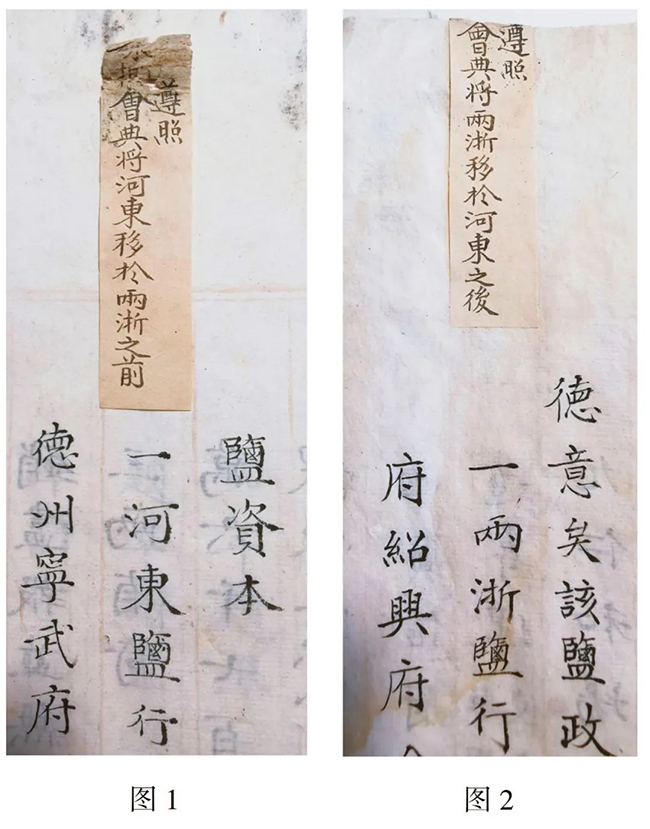 遵照
會典將河東移扵兩浙之前
鹽資本
一河東鹽行
德州寧武府
图1
遵照
會典將兩浙移扵河東之後
德意矣該鹽政
一兩浙鹽行
府紹興府
图2